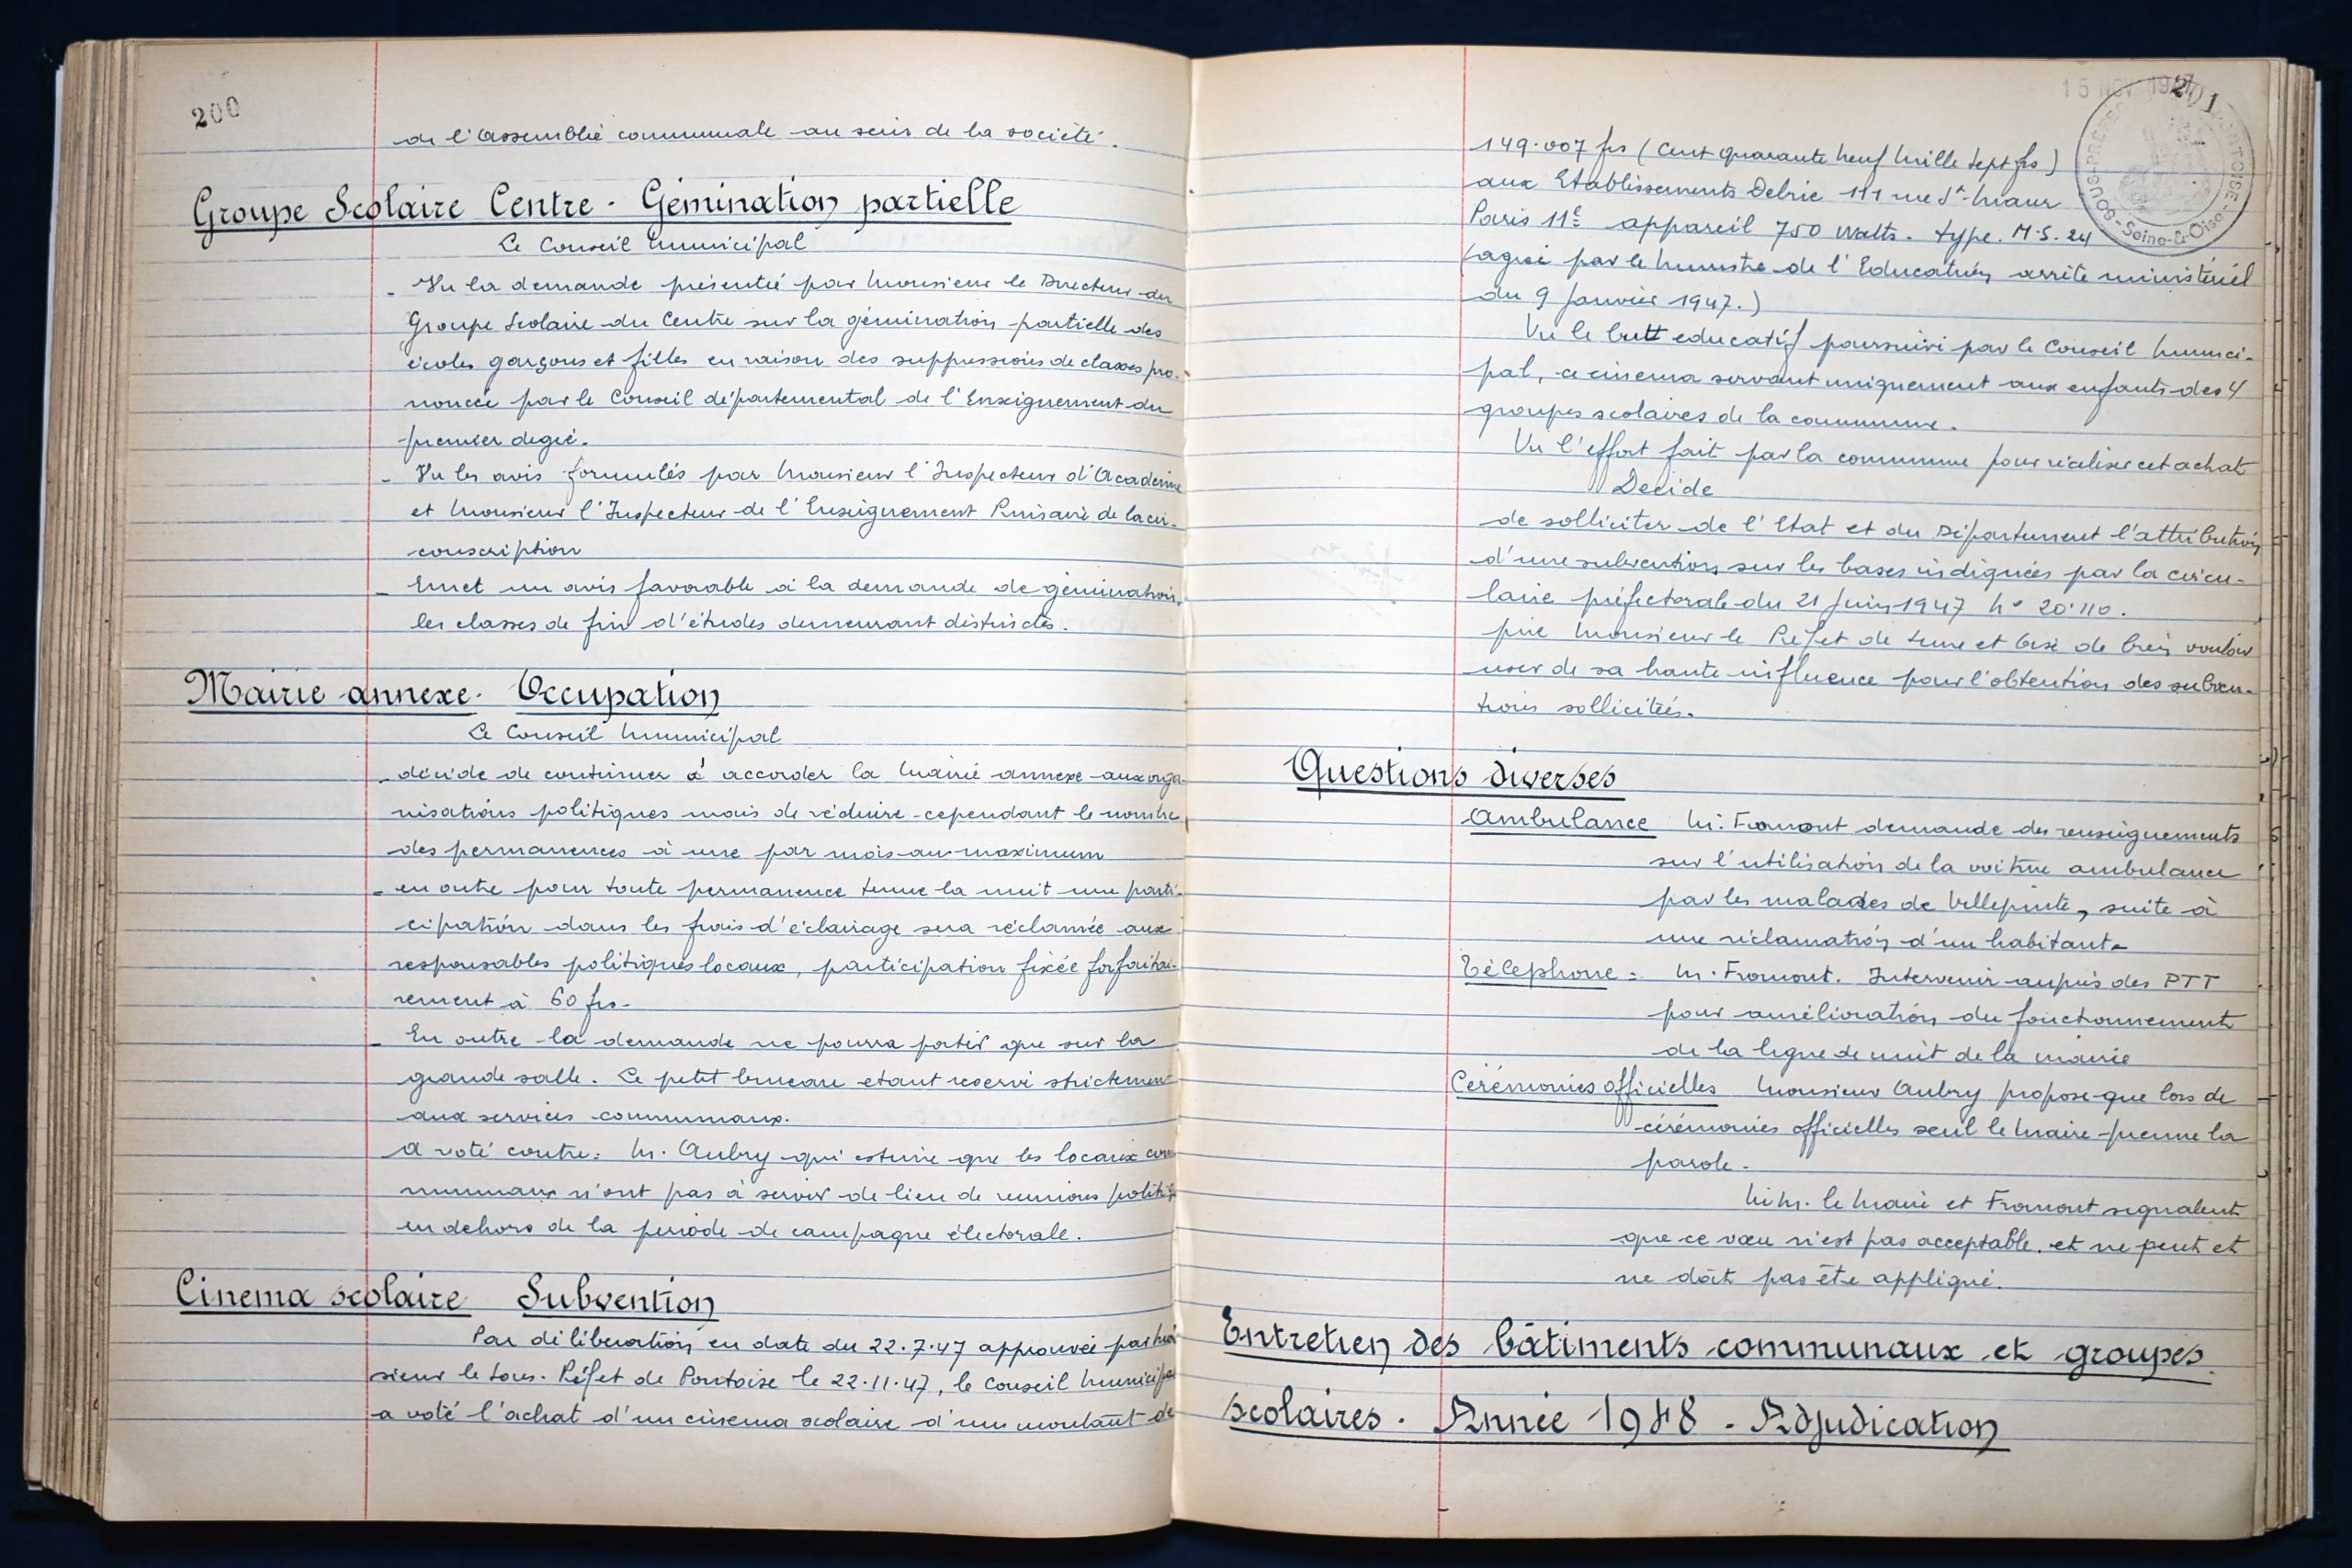 200
de l'assemblée communale au sein de la société.
Groupe Scolaire Centre - Gémination partielle
Le Conseil Municipal
- Vu la demande présentée par Monsieur le Directeur du
Groupe Scolaire du Centre sur la gémination partielle des
écoles garçons et filles en raison des suppressions de classes pro-
noncée par le Conseil départemental de l'Enseignement du
premier degré.
- Vu les avis formulés par Monsieur l'Inspecteur d'Académie
et Monsieur l'Inspecteur de l'Enseignement Primaire de la cir-
conscription
- Emet un avis favorable à la demande de gémination,
les classes de fin d'études demeurant distinctes.
Mairie annexe. Occupation
Le Conseil Municipal
- décide de continuer à accorder la Mairie annexe aux orga
nisations politiques mais de réduire cependant le nombre
des permanences à une par mois au maximum
- en outre pour toute permanence tenue la nuit une parti-
cipation dans les frais d'éclairage sera réclamée aux
responsables politiques locaux, participation fixée forfaitai-
rement à 60 frs.
- En outre la demande ne pourra porter que sur la
grande salle. Le petit bureau etant reservé strictement
aux services communaux.
A voté contre: M. Aubry qui estime que les locaux com
munaux n'ont pas à servir de lieu de reunions politiq
en dehors de la période de campagne électorale.
Cinema scolaire Subvention
Par délibération en date du 22.7.47 approuvée par Mon
sieur le Sous-Préfet de Pontoise le 22.11.47, le Conseil Municipal
a voté l'achat d'un cinema scolaire d'un montant de
15 NOV 194
201
SOUS-PREFECTURE PONTOISE
Seine-&-Oise
149.007 frs (cent quarante neuf mille sept frs)
aux Etablissements Debrie 111 rue St Maur
Paris 11e appareil 750 watts. type. M.S. 24
(agréé par le Ministre de l'Education arrête ministériel
du 9 Janvier 1947.)
Vu le butt educatif poursuivi par le Conseil Munici-
pal, ce cinema servant uniquement aux enfants des 4
groupes scolaires de la commune.
Vu l'effort fait par la commune pour réaliser cet achat
Decide
de solliciter de l'Etat et du Département l'attribution
d'une subvention sur les bases indiquées par la circu-
laire préfectorale du 21 Juin 1947 No 20.110.
prie Monsieur le Préfet de Seine et Oise de bien vouloir
user de sa haute influence pour l'obtention des subven-
tions sollicitées.
Questions diverses
Ambulance M. Fromont demande des renseignements
sur l'utilisation de la voiture ambulance
par les malades de Villepinte, suite à
une réclamation d'un habitant.
Téléphone = M. Fromont. Intervenir auprès des PTT
pour amélioration du fonctionnement
de la ligne de nuit de la mairie
Cérémonies officielles Monsieur Aubry propose que lors de
cérémonies officielles seul le Maire prenne la
parole.
MM. le Maire et Fromont signalent
que ce vœu n'est pas acceptable, et ne peut et
ne doit pas être appliqué.
Entretien des bâtiments communaux et groupes
scolaires. Année 1948 - Adjudication